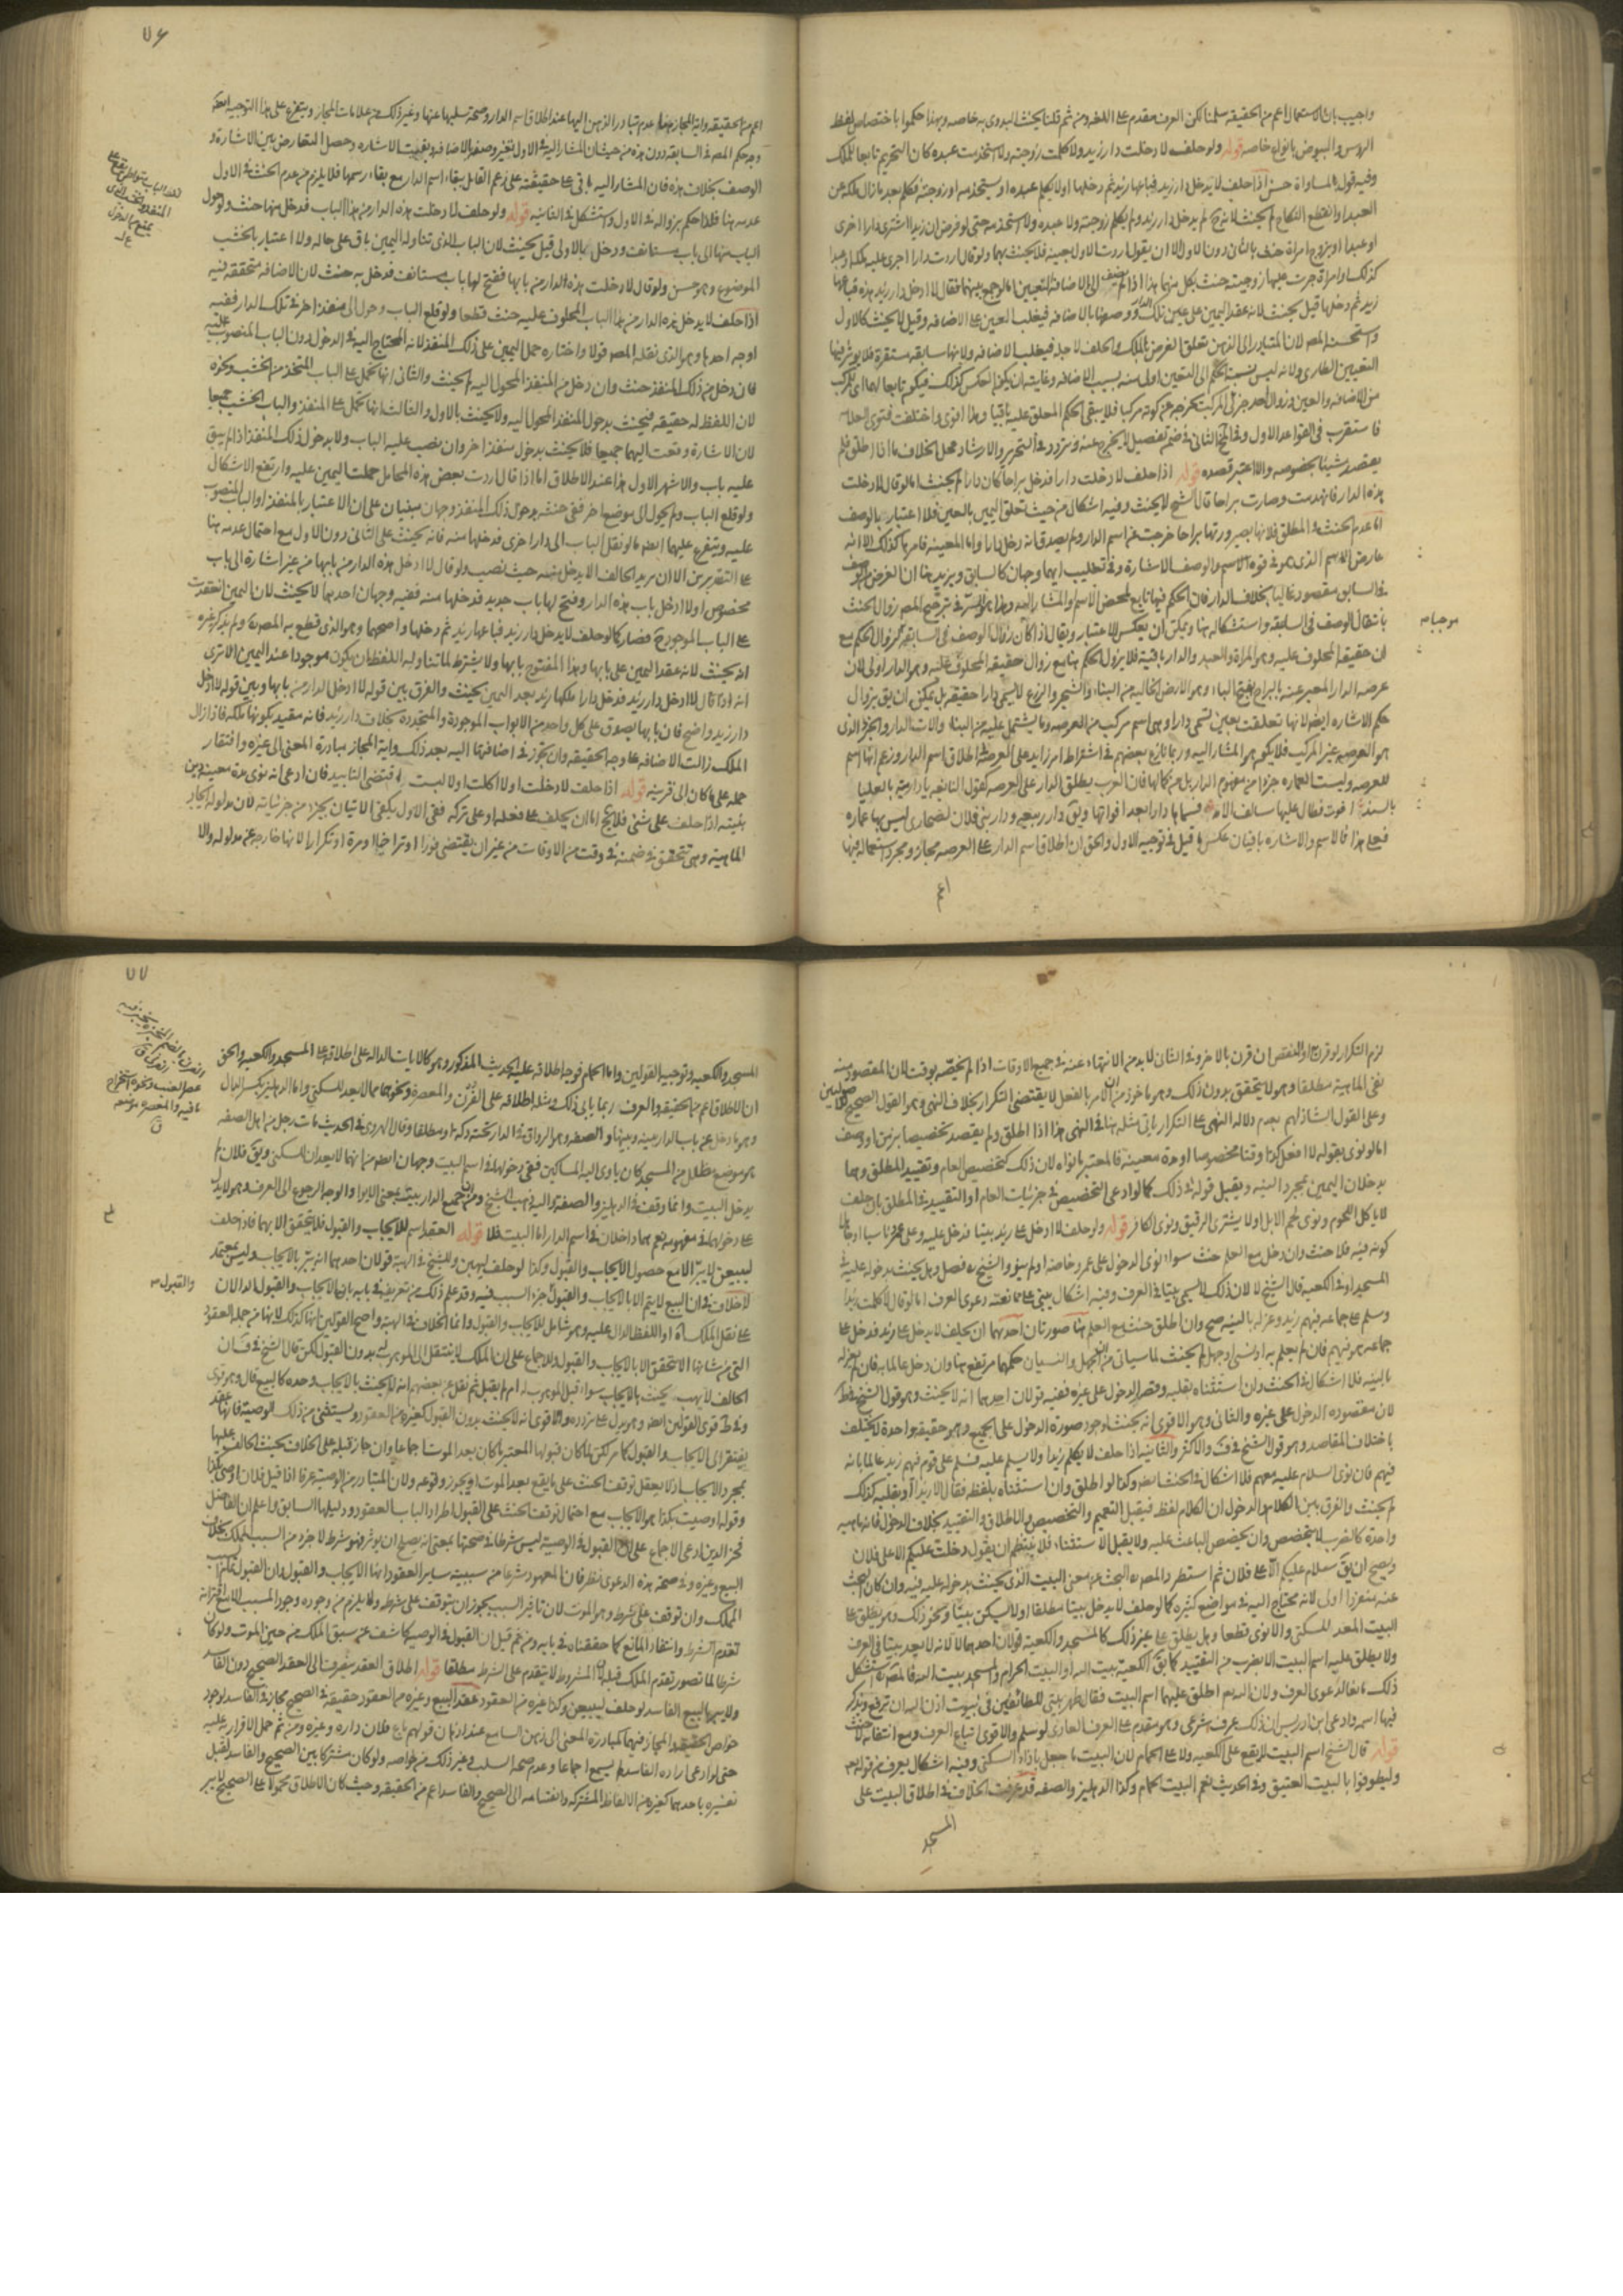 واجيب بان الاستعمال اعم من الحقيقة سلمنا لكن العرف مقدم على اللغة ومن ثم قلنا يحنث البدوى به خاصة وبهذا حكموا باختصاص لفظ
الرؤس والبيوض بالنوى خاصة قوله ولو حلف لا دخلت دار زيد ولا كلمت زوجته ولا استخدمت عبده كان التحريم تابعا للملك
وفيه قول بالمساواة حسن اذا حلف لا يدخل دار زيد فباعها زيد ثم دخلها اولا يكلم عبده او يستخدمه او زوجته فكلم بعد ما زال ملكه عن
العبد او انقطع النكاح لم يحنث لانه لم يدخل دار زيد ولم يكلم زوجته ولا عبده ولا استخدمه حتى لو فرض ان زيدا اشترى دارا اخرى
او عبدا او تزوج امراة حنث بالثانى دون الاول الا ان يقول اردت الاول بعينه فلا يحنث بهما ولو قال اردت دارا جرى عليها ملكه او عبدا
كذلك وامراة جرت عليها زوجيته حنث بكل منهما هذا اذا لم يضف الى الاضافة التعيين اما لو جمع بينهما فقال لا ادخل دار زيد هذه فباعها
زيد ثم دخلها قيل يحنث لانه عقد اليمين على عين تلك الدار ووصفها بالاضافة فيغلب العين على الاضافة وقيل لا يحنث كالاول
واستحسنه المصه لان المتبادر الى الذهن تعلق الغرض بالملك والحلف لاجله فيغلب الاضافة ولانها سابقة مستقرة فلا يؤثر فيها
التعيين الطارى ولانه ليس نسبة الحكم الى التعيين اولى منه بسبب الاضافة وغايته ان يكون العكس كذلك فيكون تابعا لهما اى للمركب
من الاضافة والعين وزوال احد جزئى المركب يخرجه عن كونه مركبا فلا يبقى الحكم المعلق عليه باقيا وهذا اقوى واختلفت فتوى العلامه
فاستقرب فى القواعد الاول وفى المخ الثانى فى ضم تفصيل لا يخرج عنه وتردد فى التحرير والارشاد ومحل الخلاف ما اذا اطلق فلم
يقصد شيئا بخصوصه والا اعتبر قصده قوله اذا حلف لا دخلت دارا فدخل براحا كان دارا لم يحنث اما لو قال لا دخلت
هذه الدار فانهدمت وصارت براحا قال الشيخ لا يحنث وفيه اشكال من حيث تعلق اليمين بالعين فلا اعتبار بالوصف
اما عدم الحنث فى المطلق فلانها بصيرورتها براحا خرجت عن اسم الدار ولم يصدق انه دخل دارا واما المعينه فامرها كذلك الا انه
عارض الاسم الذى هو فى قوة الاسم والوصف الاشارة وفى تغليب ايهما وجهان كالسابق ويزيد هنا ان الغرض بالوصف
فى السابق مقصود غالبا بخلاف الدار فان الحكم فيها تابع لمحض الاسم والمشار اليه وهذا هو السر فى ترجيح المصه زوال الحنث
بانتقال الوصف فى السابقة واستشكاله هنا ويمكن ان يعكس الاعتبار ويقال اذا كان زوال الوصف فى السابقة زوال الحكم مع
ان حقيقة المحلوف عليه وهو المراة والعبد والدار باقية فلا يزول الحكم هنا مع زوال حقيقة المحلوف عليه وهو الدار اولى لان
عرصة الدار المعبر عنه بالبراح بفتح الباء وهو الارض الخالية من البناء والشجر والزرع لا يسمى دارا حقيقة بل يمكن ان يق بزوال
حكم الاشارة ايضا لانها تعلقت بعين تسمى دارا وهى اسم مركب من العرصة وما يشتمل عليه من البناء والات الدار والجزء الذى
هو العرصة غير المركب فلا يكون هو المشار اليه وربما نازع بعضهم فى اشتراط امر زايد على العرصة فى اطلاق اسم الدار وزعم انها اسم
للعرصة وليست العمارة جزءا من مفهوم الدار بل من كمالها فان العرب يطلق الدار على العرصة كقول النابغه يا دار مية بالعليا
بالسند اقوت فطال عليها سالف الامد فسماها دارا بعد اقوائها ويق دار ربيعه ودار بنى فلان لصحارى ليس بها عماره
فعلى هذا فالاسم والاشارة باقيان عكس ما قيل فى توجيه الاول والحق ان اطلاق اسم الدار على العرصه مجاز ومجرد استعماله فيها
اعم
موجبا مه
٧٦
اعم من الحقيقة واية المجاز هنا عدم تبادر الذهن اليها عند اطلاق اسم الدار وصحة سلبها عنها وغير ذلك من علامات المجاز ويتفرع على هذا التوجيه
وجه حكم المصه فى السابقة دون هذه من حيث ان المشار اليه فى الاول تغير وصفه الاضافى وبقيت الاشارة وحصل التعارض بين الاشارة و
الوصف بخلاف هذه فان المشار اليه باقى على حقيقته على زعم القايل ببقاء اسم الدار مع بقاء رسمها فلا يلزم من عدم الحنث فى الاول
عدمه هنا فلذا حكم بزواله فى الاول واستشكل فى الثانيه قوله ولو حلف لا دخلت هذه الدار من هذا الباب فدخل منها حنث ولو حول
الباب عنها الى باب مستانف ودخل بالاولى قيل يحنث لان الباب الذى تناوله اليمين باق على حاله ولا اعتبار بالخشب
الموضوع وهو حسن ولو قال لا دخلت هذه الدار من بابها ففتح لها باب مستانف فدخل به حنث لان الاضافة متحققه فيه
اذا حلف لا يدخل هذه الدار من هذا الباب المحلوف عليه حنث قطعا ولو قلع الباب وحول الى منفذ اخر فى تلك الدار ففيه
اوجه احدها وهو الذى نقله المصه قولا واختاره حمل اليمين على ذلك المنفذ لانه المحتاج اليه فى الدخول دون الباب المنصوب عليه
فان دخل من ذلك المنفذ حنث وان دخل من المنفذ المحول اليه لم يحنث والثانى انها تحمل على الباب المتخذ من الخشب ونحوه
لان اللفظ له حقيقة فيحنث بدخول المنفذ المحول اليه ولا يحنث بالاول والثالث انها تحمل على المنفذ والباب الخشب جميعا
لان الاشارة وقعت اليهما جميعا فلا يحنث بدخول منفذ اخر وان نصب عليه الباب ولا بدخول ذلك المنفذ اذا لم يبق
عليه باب والاشهر الاول هذا عند الاطلاق اما اذا قال اردت بعض هذه المحامل حملت اليمين عليه وارتفع الاشكال
ولو قلع الباب ولم يحول الى موضع اخر ففى حنثه بدخول ذلك المنفذ وجهان مبنيان على ان الاعتبار بالمنفذ او الباب المنصوب
عليه ويتفرع عليهما ايضا ما لو نقل الباب الى دار اخرى فدخلها منه فانه يحنث على الثانى دون الاول مع احتمال عدمه هنا
على التقديرين الا ان يريد الحالف الا يدخل منه حيث نصب ولو قال لا ادخل هذه الدار من بابها من غير اشارة الى باب
مخصوص اولا ادخل باب هذه الدار وفتح لها باب جديد فدخلها منه ففيه وجهان احدهما لا يحنث لان اليمين انعقدت
على الباب الموجود ح فصار كما لو حلف لا يدخل دار زيد فباعها زيد ثم دخلها واصحهما وهو الذى قطع به المصه ولم يذكر غيره
انه يحنث لانه عقد اليمين على بابها وهذا المفتوح بابها ولا يشترط لما تناوله اللفظ ان يكون موجودا عند اليمين الا ترى
انه اذا قال لا ادخل دار زيد فدخل دارا ملكها زيد بعد اليمين يحنث والفرق بين قوله لا ادخل الدار من بابها وبين قوله لا ادخل
دار زيد واضح فان بابها يصدق على كل واحد من الابواب الموجودة والمتجددة بخلاف دار زيد فانه مقيد بكونها ملكه فاذا زال
الملك زالت الاضافة على وجه الحقيقة وان تجوز فى اضافتها اليه بعد ذلك واية المجاز مبادرة المعنى الى غيره وافتقار
حمله على ما كان الى قرينة قوله اذا حلف لا دخلت اولا اكلت اولا لبست اقتضى التابيد فان ادعى انه نوى مدة معينة دين
بنيته اذا حلف على شئ فلا يخ اما ان يحلف على فعله او على تركه ففى الاول يكفى الاتيان بجزء من جزئياته لان مدلوله ايجاد
الماهية وهى تتحقق فى ضمنه فى وقت من الاوقات من غير ان يقتضى فورا او تراخيا او مرة او تكرارا لانها خارجة عن مدلوله والا
لزم التكرار لو قرن او النقص ان قرن بالاخر وفى الثانى لا بد من الانتهاء عنه فى جميع الاوقات اذا لم يخصه بوقت لان المقصود منه
نفى الماهية مطلقا وهو لا يتحقق بدون ذلك وهو ماخوذ من ان الامر بالفعل لا يقتضى التكرار بخلاف النهى وهو القول الصحيح للاصوليين
وعلى القول الشاذ لهم بعدم دلالة النهى على التكرار ياتى مثله هنا فى النهى هذا اذا اطلق ولم يقصد تخصيصا بزمن او وصف
اما لو نوى بقوله لا افعل كذا وقتا مخصوصا او مدة معينة فالمعتبر ما نواه لان ذلك كتخصيص العام وتقييد المطلق وهما
يدخلان اليمين بمجرد النية ويقبل قوله فى ذلك كما لو ادعى التخصيص فى جزئيات العام او التقييد فى المطلق بان حلف
لا ياكل اللحوم ونوى لحم الابل اولا يشترى الرقيق ونوى الكافر قوله ولو حلف لا ادخل على زيد بيتا فدخل عليه وعلى عمرو ناسيا او جاهلا
كونه فيه فلا حنث وان دخل مع العلم حنث سواء نوى الدخول على عمرو خاصة او لم ينو والشيخ ره فصل وهل يحنث بدخوله عليه فى
المسجد او فى الكعبة قال الشيخ لا لان ذلك لا يسمى بيتا فى العرف وفيه اشكال يبنى على ممانعته دعوى العرف اما لو قال لا كلمت زيدا
وسلم على جماعة فيهم زيد وعزله بالنية صح وان اطلق حنث مع العلم هنا صورتان احدهما ان يحلف لا يدخل على زيد فدخل على
جماعة هو فيهم فان لم يعلم به او نسى او جهل لم يحنث لما سياتى من ان الجهل والنسيان حكمهما مرتفع هنا وان دخل عالما به فان لم يعزله
بالنية فلا اشكال فى الحنث وان استثناه بقلبه وقصد الدخول على غيره ففيه قولان احدهما انه لا يحنث وهو قول الشيخ فى ط
لان مقصوده الدخول على غيره والثانى وهو الاقوى انه يحنث لوجود صورة الدخول على الجميع وهو حقيقة واحدة لا يختلف
باختلاف المقاصد وهو قول الشيخ فى ف والاكثر والثانية اذا حلف لا يكلم زيدا ولا يسلم عليه فسلم على قوم فيهم زيد عالما بانه
فيهم فان نوى السلام عليه معهم فلا اشكال فى الحنث ايضا وكذا لو اطلق وان استثناه بلفظه فقال الا زيدا او بقلبه كذلك
لم يحنث والفرق بين الكلام والدخول ان الكلام لفظ فيقبل التعميم والتخصيص والاطلاق والتقييد بخلاف الدخول فانه ماهية
واحدة كالضرب لا يتخصص وان تخصص الباعث عليه ولا يقبل الاستثناء فلا ينتظم ان يقول دخلت عليكم الا على فلان
ويصح ان يق سلام عليكم الا على فلان ثم استطرد المصه البحث عن معنى البيت الذى يحنث بدخوله عليه فيه وان كان البحث
عنه منفردا اولى لانه محتاج اليه فى مواضع كثيرة كما لو حلف لا يدخل بيتا مطلقا اولا يسكن بيتا ونحو ذلك وهو يطلق على
البيت المعد للسكنى والايوى قطعا وهل يطلق على غير ذلك كالمسجد والكعبة قولان احدهما لا لانه لا يعد بيتا فى العرف
ولا يطلق عليه اسم البيت الا بضرب من التقييد كما يق الكعبة بيت الله او البيت الحرام والمسجد بيت الله فالمصه استشكل
ذلك مانعا لدعوى العرف ولان الله تعالى اطلق عليهما اسم البيت فقال طهر بيتى للطائفين فى بيوت اذن الله ان ترفع ويذكر
فيها اسمه وادعى ابن ادريس ان ذلك عرف شرعى وهو مقدم على العرف العادى لو سلم والاقوى اتباع العرف ومع انتفائه لا حنث
قوله قال الشيخ اسم البيت لا يقع على الكعبة ولا على الحمام لان البيت ما جعل بازاء السكنى وفيه اشكال يعرف من قوله تعالى
وليطوفوا بالبيت العتيق وفى الحديث نعم البيت الحمام وكذا الدهليز والصفة قد عرفت الخلاف فى اطلاق البيت على
المسجد
٧٧
المسجد والكعبة وتوجيه القولين واما الحمام فوجه اطلاقه عليه الحديث المذكور وهو كالايات الدالة على اطلاقه على المسجد والكعبة والحق
ان الاطلاق اعم من الحقيقة والعرف ربما يابى ذلك ومثله اطلاقه على الفرن والمعصرة ونحوهما مما لا يعد للسكنى واما الدهليز بكسر الدال
وهو ما دخل عن باب الدار بينه وبينها والصفة وهو الرواق فى الدار تحته دكة او مطلقا وقال الهروى فى الحديث مات رجل من اهل الصفة
هو موضع مظلل من المسجد كان ياوى اليه المساكين ففى دخولها فى اسم البيت وجهان ايضا من انهما لا يعدان للسكنى ويق فلان لم
يدخل البيت وانما وقف فى الدهليز والصفة واليه ذهب الشيخ ومن ان جميع الدار بيت بمعنى الايوا والوجه الرجوع الى العرف وهو لا يدل
على دخولهما فى مفهومه نعم هما داخلان فى اسم الدار اما البيت فلا قوله العقد اسم للايجاب والقبول فلا يتحقق الا بهما فاذا حلف
ليبيعن لا يبر الا مع حصول الايجاب والقبول وكذا لو حلف ليهبن وللشيخ فى الهبة قولان احدهما انه يبر بالايجاب وليس بمعتمد
لا خلاف فى ان البيع لا يتم الا بالايجاب والقبول جزء السبب فيه وقد علم ذلك من تعريفه فى بابه بانه الايجاب والقبول الدالان
على نقل الملك اه او اللفظ الدال عليه وهو شامل للايجاب والقبول وانما الخلاف فى الهبة واصح القولين انها كذلك لانها من جملة العقود
التى من شانها الا تتحقق الا بالايجاب والقبول وللاجماع على ان الملك لا ينتقل الى الموهوب له بدون القبول لكن قال الشيخ فى ف ان
الحالف لا يهب يحنث بالايجاب سواء قبل الموهوب له ام لم يقبل ثم نقل عن بعضهم انه لا يحنث بالايجاب وحده كالبيع قال وهو قوى
وفى ط قوى القولين ايضا وهو يدل على تردده والاقوى انه لا يحنث بدون القبول كغيره من العقود ويستثنى من ذلك الوصية فانها عقد
يفتقر الى الايجاب والقبول كما مر لكن لما كان قبولها المعتبر ما كان بعد الموت اجماعا وان جاز قبله على الخلاف يحنث الحالف عليها
بمجرد الايجاب اذ لا يعقل توقف الحنث على ما يقع بعد الموت ويجوز وقوعه ولان المتبادر من الوصية عرفا اذا قيل فلان اوصى بكذا
وقوله اوصيت بكذا هو الايجاب مع احتمال توقف الحنث على القبول اطراد الباب العقود ودليلها السابق واعلم ان الفاضل
فخر الدين ادعى الاجماع على ان القبول فى الوصية ليس شرطا فى صحتها بمعنى انه يصلح ان يؤثر فهو شرط لا جزء من السبب المملك بخلاف
البيع وغيره وفى صحة هذه الدعوى نظر فان المعهود شرعا من سببية ساير العقود انها الايجاب والقبول وان القبول تمام سبب
الملك وان توقف على شرط وهو الموت لان تاثير السبب يجوز ان يتوقف على شرط ولا يلزم من وجوده وجود المسبب الا مع اقترانه
تقدم الشرط وانتفاء المانع كما حققناه فى بابه ومن ثم قيل ان القبول فى الوصية كاشف عن سبق الملك من حين الموت ولو كان
شرطا لما تصور تقدم الملك قبله لان المشروط لا يتقدم على الشرط مطلقا قوله اطلاق العقد ينصرف الى العقد الصحيح دون الفاسد
ولا يبر بالبيع الفاسد لو حلف ليبيعن وكذا غيره من العقود عقد البيع وغيره من العقود حقيقة فى الصحيح مجاز فى الفاسد لوجود
خواص الحقيقة والمجاز فيهما كمبادرة المعنى الى ذهن السامع عند اطلاق قولهم باع فلان داره وغيره ومن ثم حمل الاقرار به عليه
حتى لو ادعى ارادة الفاسد لم يسمع اجماعا وعدم صحة السلب وغير ذلك من خواصه ولو كان مشتركا بين الصحيح والفاسد لقبل
تفسيره باحدهما كغيره من الالفاظ المشتركة وانقسامه الى الصحيح والفاسد اعم من الحقيقة وحيث كان الاطلاق محمولا على الصحيح لا يبر
والقبول مه